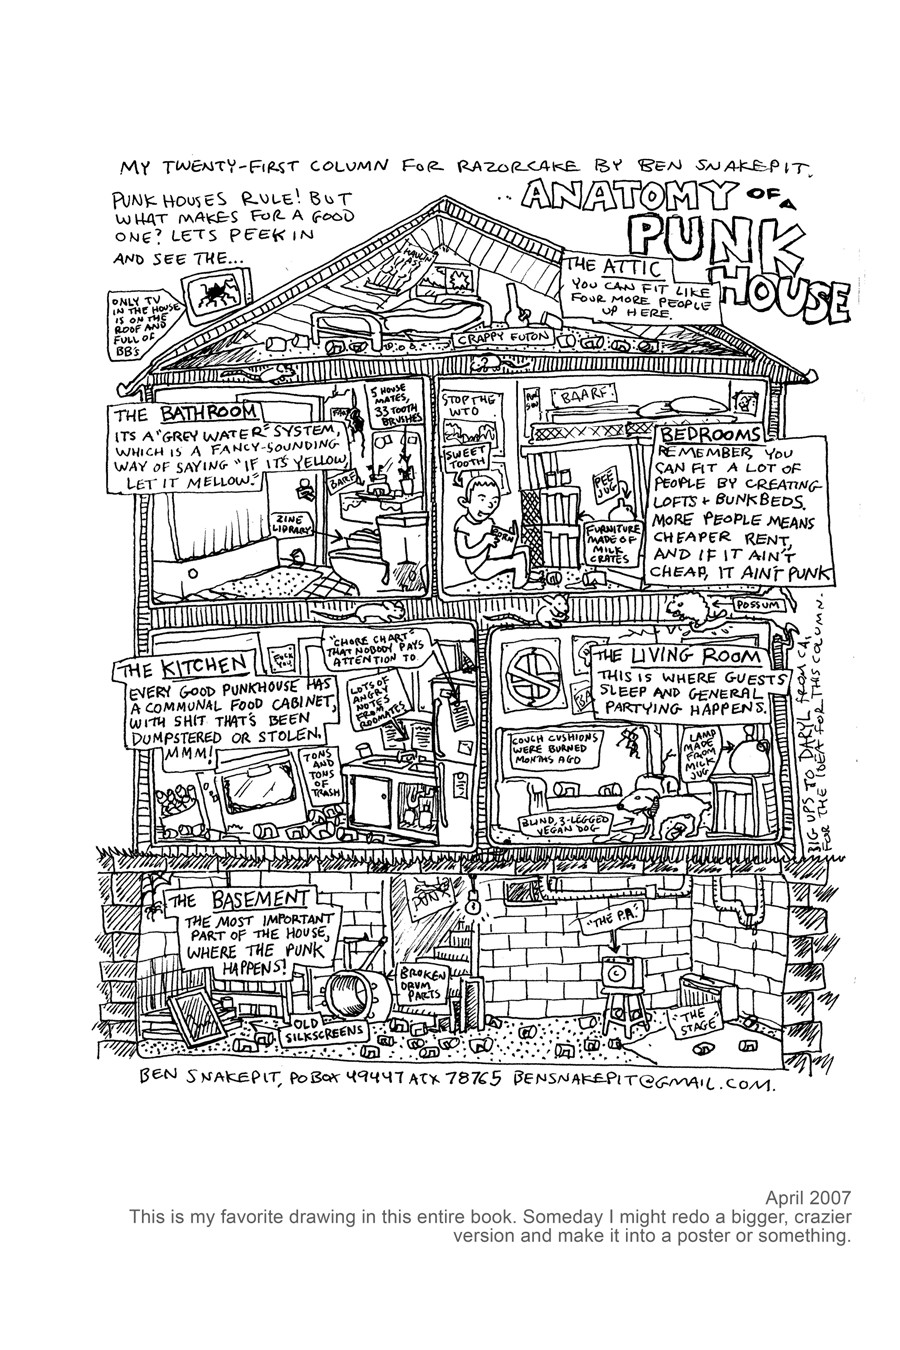 MY TWENTY-FIRST COLUMN FOR RAZORCAKE BY BEN SNAKEPIT.
PUNK HOUSES RULE! BUT
WHAT MAKES FOR A GOOD
ONE? LETS PEEK IN
AND SEE THE...
.. ANATOMY OF A
PUNK
HOUSE
ONLY TV
IN THE HOUSE
IS ON THE
ROOF AND
FULL OF
BB's
THE ATTIC
YOU CAN FIT LIKE
FOUR MORE PEOPLE
UP HERE.
CRAPPY FUTON
THE BATHROOM
ITS A "GREY WATER" SYSTEM,
WHICH IS A FANCY-SOUNDING
WAY OF SAYING "IF IT'S YELLOW,
LET IT MELLOW."
5 HOUSE
MATES,
33 TOOTH
BRUSHES
BARF
ZINE
LIBRARY
STOP THE
WTO
SWEET
TOOTH
PORN
BAARF
PEE
JUG
FURNITURE
MADE OF
MILK
CRATES
BEDROOMS
REMEMBER, YOU
CAN FIT A LOT OF
PEOPLE BY CREATING
LOFTS + BUNKBEDS.
MORE PEOPLE MEANS
CHEAPER RENT,
AND IF IT AIN'T
CHEAP, IT AIN'T PUNK
POSSUM
THE KITCHEN
EVERY GOOD PUNKHOUSE HAS
A COMMUNAL FOOD CABINET,
WITH SHIT THAT'S BEEN
DUMPSTERED OR STOLEN.
MMM!
FUCK
YOU
"CHORE CHART"
THAT NOBODY PAYS
ATTENTION TO
LOTS OF
ANGRY
NOTES
FROM
ROOMATES
TONS
AND
TONS
OF
TRASH
THE LIVING ROOM
THIS IS WHERE GUESTS
SLEEP AND GENERAL
PARTYING HAPPENS.
COUCH CUSHIONS
WERE BURNED
MONTHS AGO
LAMP
MADE
FROM
MILK
JUG
BLIND, 3-LEGGED
VEGAN DOG
BIG UPS TO DARYL FROM CA,
FOR THE IDEA FOR THIS COLUMN.
THE BASEMENT
THE MOST IMPORTANT
PART OF THE HOUSE,
WHERE THE PUNK
HAPPENS!
PUNX
"THE P.A."
BROKEN
DRUM
PARTS
OLD
SILKSCREENS
"THE
STAGE"
BEN SNAKEPIT, PO BOX 49447 ATX 78765 BENSNAKEPIT@GMAIL.COM.
April 2007
This is my favorite drawing in this entire book. Someday I might redo a bigger, crazier
version and make it into a poster or something.